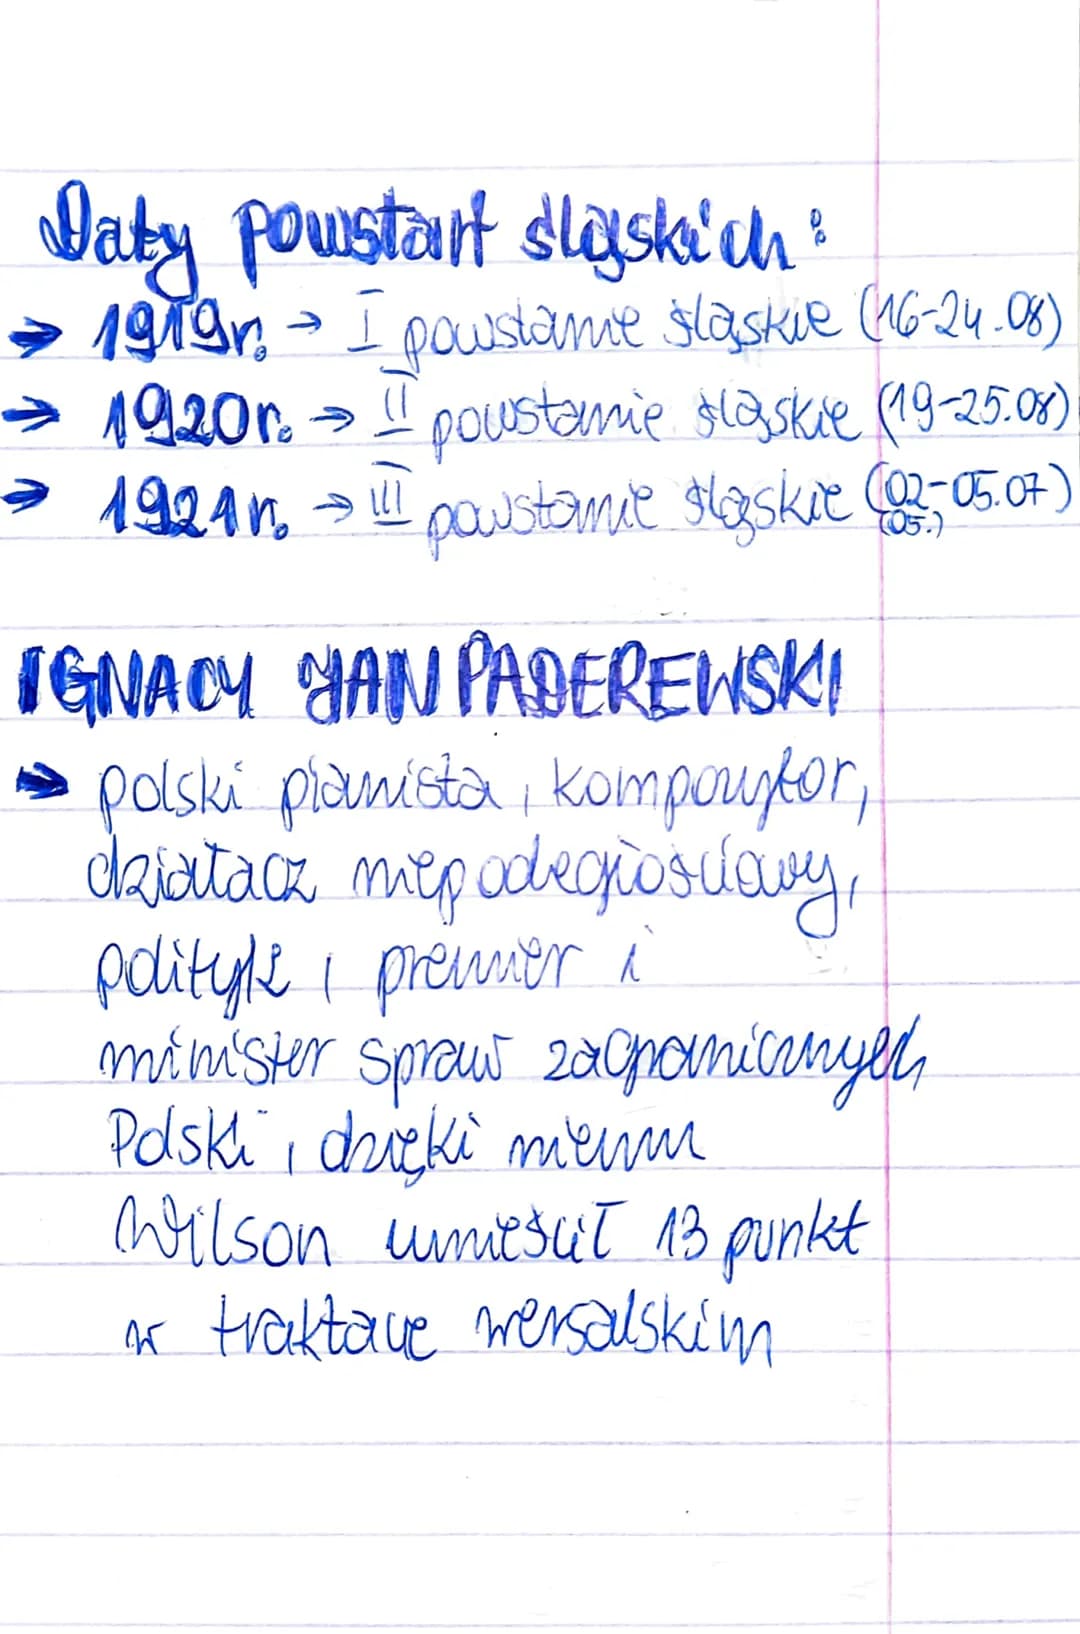 Daty powstań śląskich:
→ 1919r. → I powstanie śląskie (16-24.08)
→ 1920r. → II powstanie śląskie (19-25.08)
→ 1921r. → III powstanie śląskie (02-05.07)
(05.)
IGNACY JAN PADEREWSKI
→ polski pianista, kompozytor,
działacz niepodegłościowy,
polityk, premier i
minister spraw zagranicznych
Polski, dzięki niemu
Wilson umieścił 13 punkt
w traktacie wersalskim